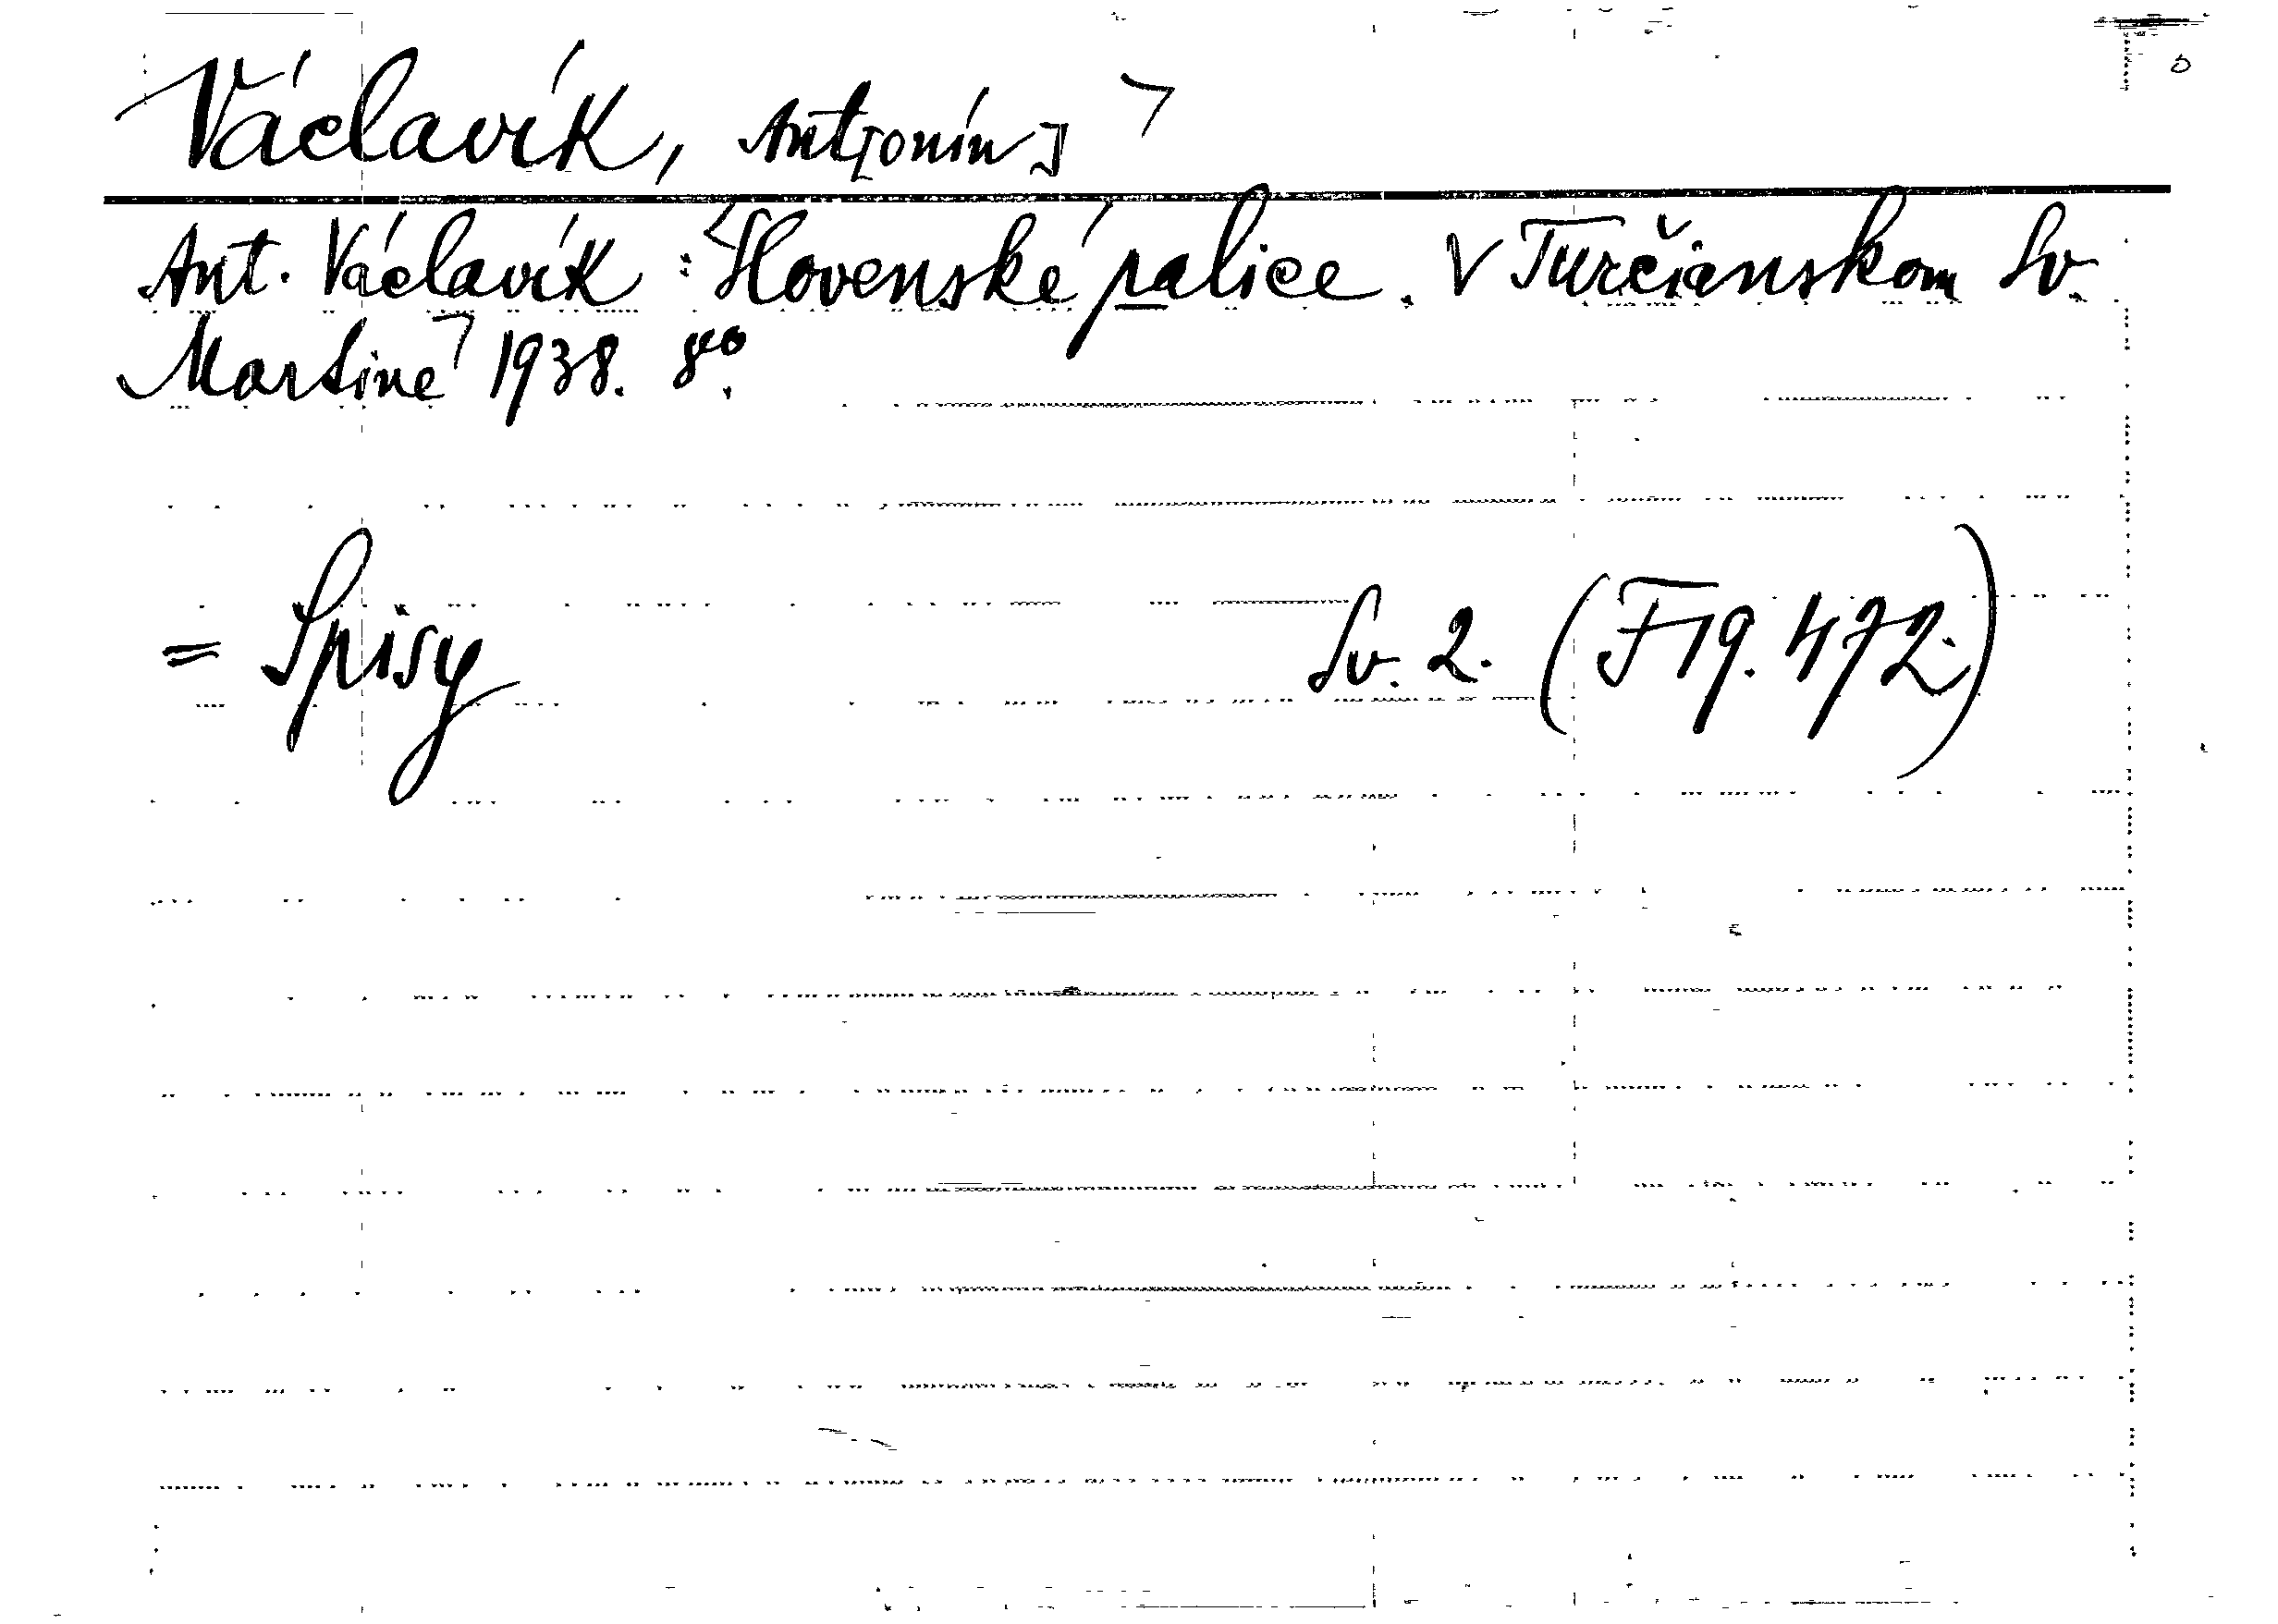 Václavík, Ant[onín]
Ant. Václavík: Slovenské palice. V Turčianskom Sv.
Martine 1938. 8º.
= Spisy Sv. 2. (F 19.472.)